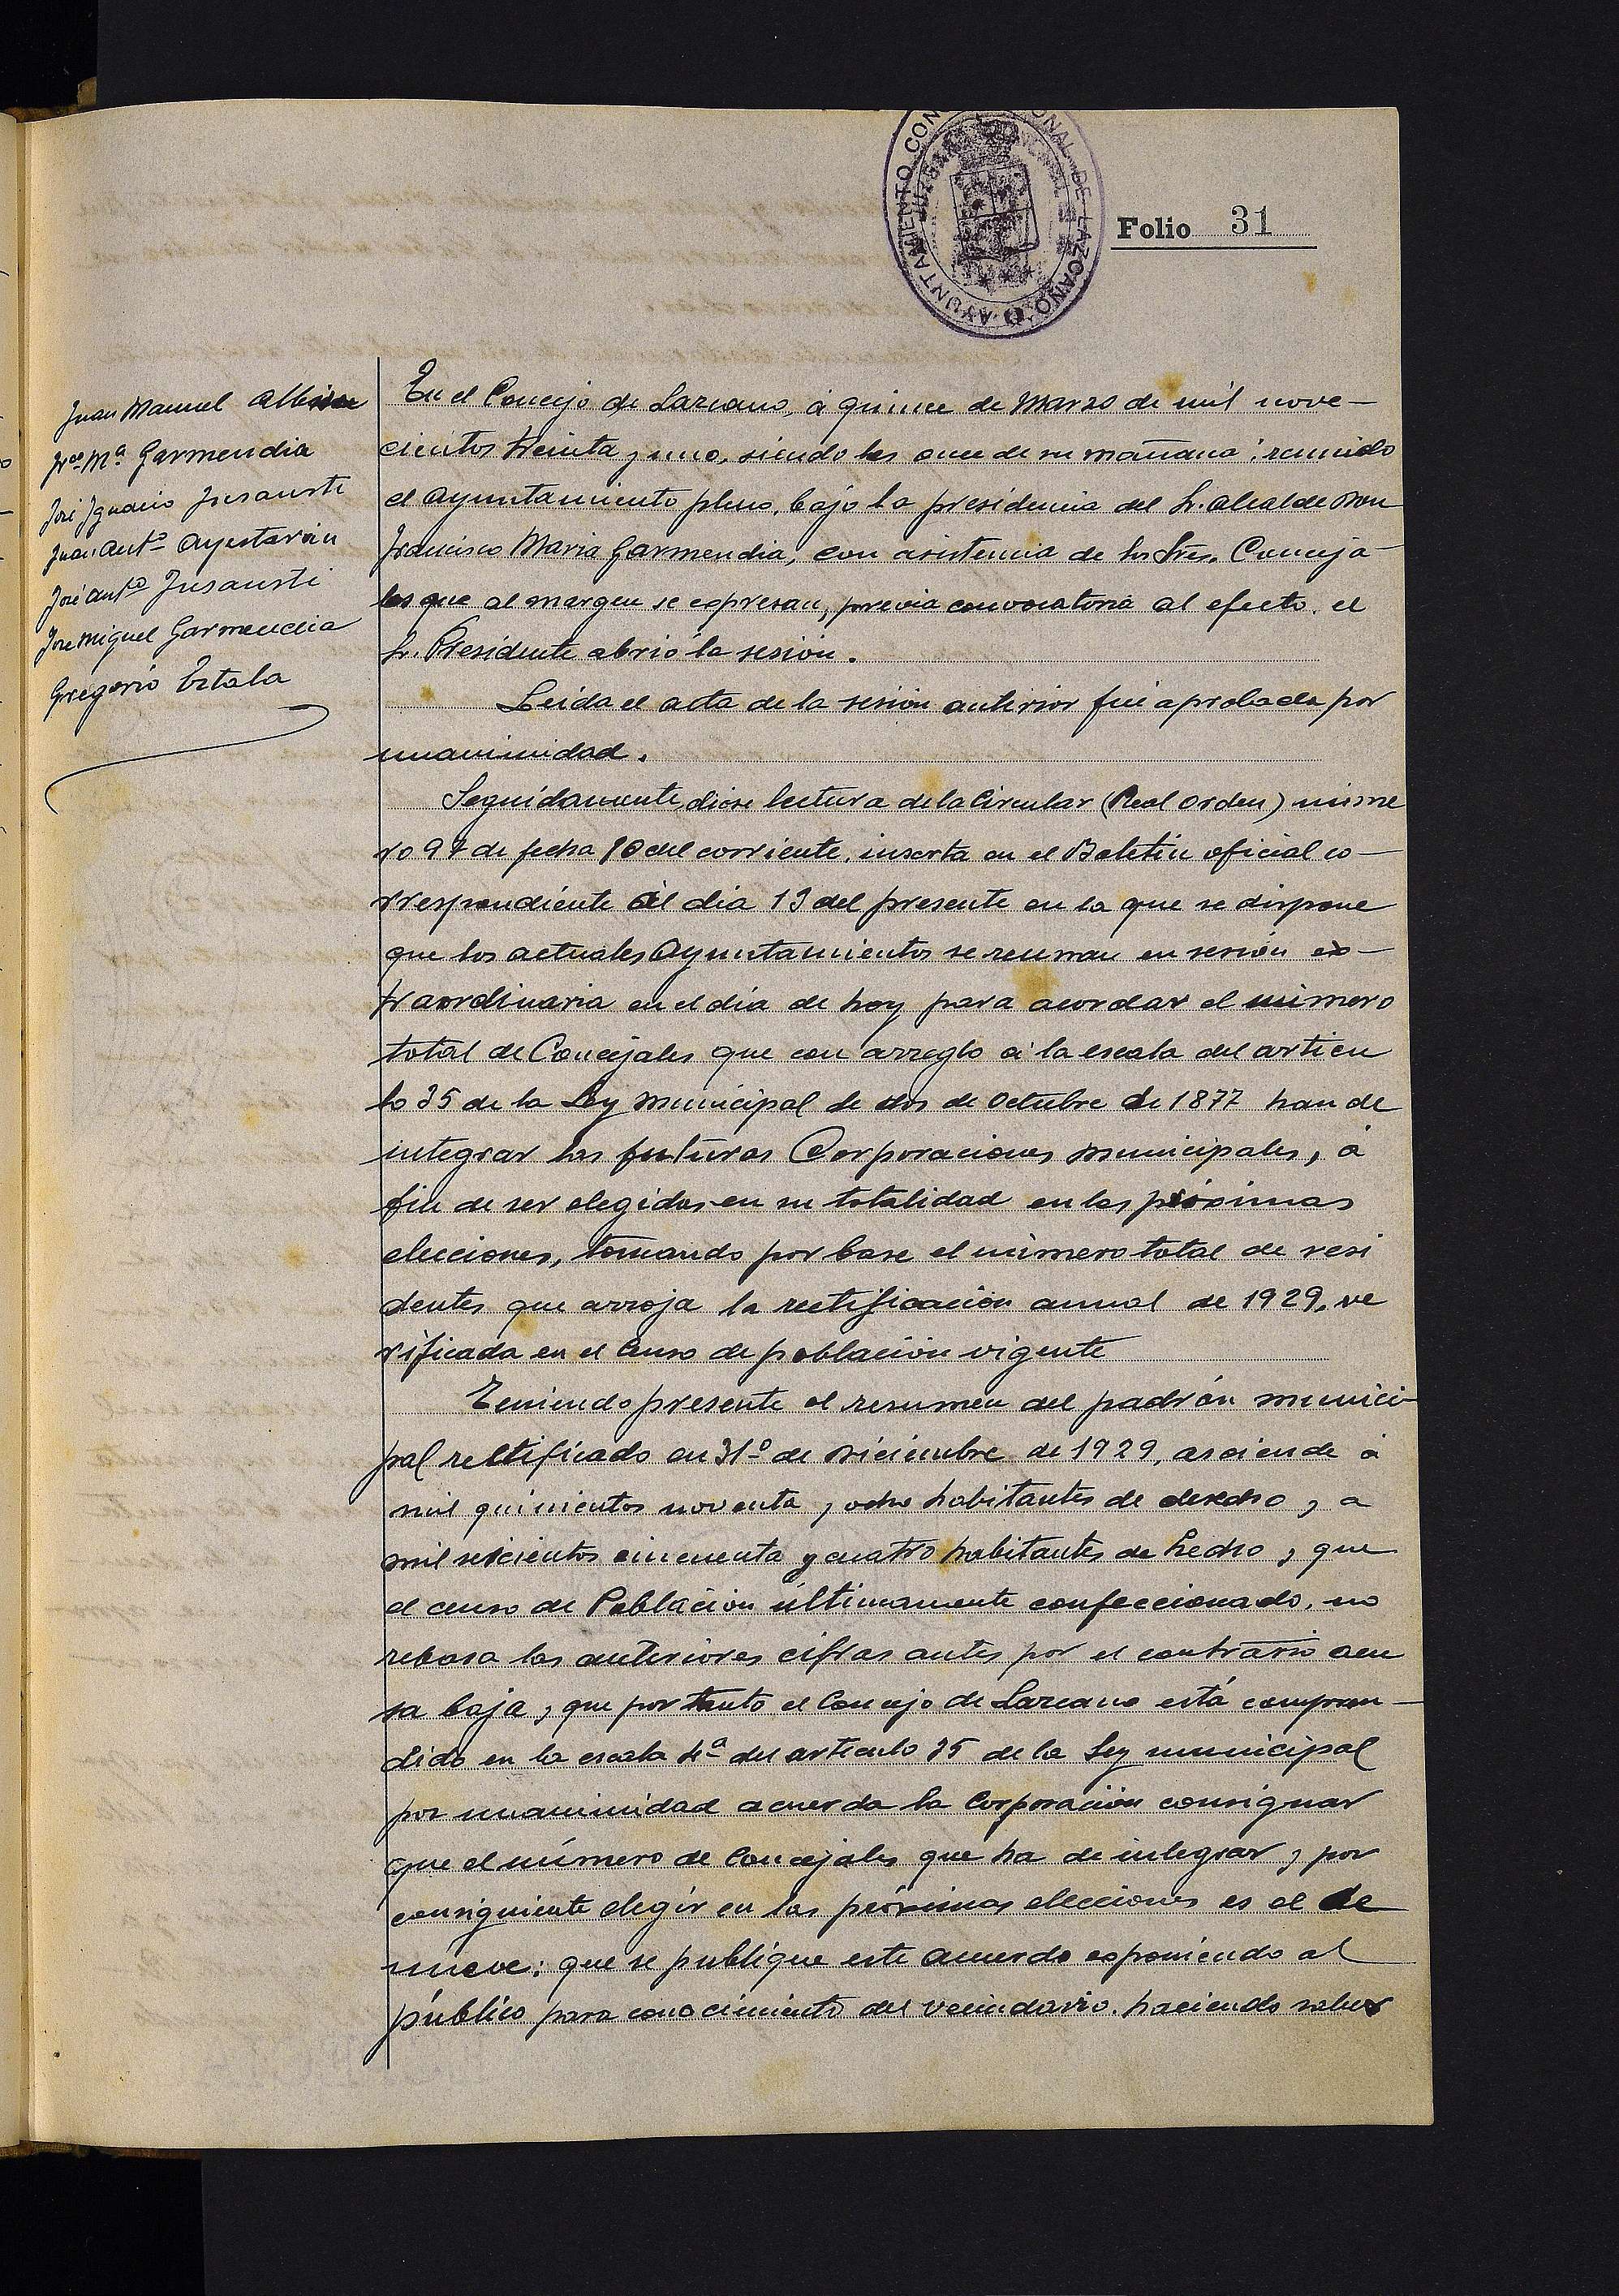 AYUNTAMIENTO CON ONAL DE LAZCANO
Folio 31
Juan Manuel Albisu
Fco Mª Garmendia
José Ignacio Jusausti
Juan Antº Ayestarán
José Antº Jusausti
José Miguel Garmendia
Gregorio Estala
En el Concejo de Lazcano, á quince de Marzo de mil nove-
cientos treinta y uno, siendo las once de su mañana; reunido
el Ayuntamiento pleno, bajo la presidencia del Sr. Alcalde Don
Francisco Maria Garmendia, con asistencia de los Sres. Conceja-
les que al margen se expresan, previa convocatoria al efecto, el
Sr. Presidente abrió la sesión.
Leida el acta de la sesión anterior fué aprobada por
unanimidad.
Seguidamente diose lectura de la Circular (Real orden) núme
ro 97 de fecha 10 del corriente, inserta en el Boletín oficial co-
rrespondiente al dia 13 del presente en la que se dispone
que los actuales Ayuntamientos se reunan en sesión ex-
traordinaria en el día de hoy para acordar el número
total de Concejales que con arreglo á la escala del artícu
lo 35 de la Ley Municipal de dos de Octubre de 1877 han de
integrar las futuras Corporaciones municipales, á
fin de ser elegidos en su totalidad en las próximas
elecciones, tomando por base el número total de resi
dentes que arroja la rectificación anual de 1929, ve
rificada en el Censo de población vigente
Teniendo presente el resumen del padrón munici-
pal rectificado en 31º de Diciembre de 1929, asciende á
mil quinientos noventa y ocho habitantes de derecho y a
mil seiscientos cincuenta y cuatro habitantes de hecho y que
el censo de Población últimamente confeccionado, no
rebasa las anteriores cifras antes por el contrario acu
sa baja, y que por tanto el Concejo de Lazcano está compren-
dido en la escala 4ª del artículo 35 de la Ley municipal
por unanimidad acuerda la Corporación consignar
que el número de Concejales que ha de integrar y por
consiguiente elegir en las próximas elecciones es el de
nueve: que se publique este acuerdo exponiendo al
público para conocimiento del vecindario. haciendo saber